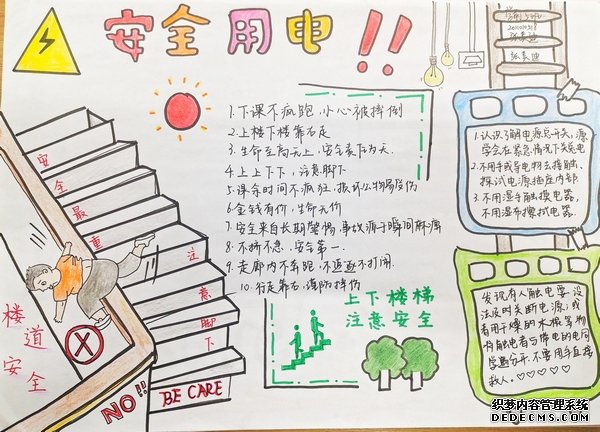 安全用电!!
1.下课不疯跑,小心被摔倒
2.上楼下楼靠右走
3.生命至高无上,安全责任为天.
4.上上下下,注意脚下
5.课余时间不疯狂,损坏公物易受伤
6.金钱有价,生命无价
7.安全来自长期警惕,事故源于瞬间麻源
8.不挤不急,安全第一.
9.走廊内不奔跑,不追逐不打闹.
10.行走靠右,谨防摔伤
上下楼梯
注意安全
安全最重
注意脚下
楼道安全
NO!!
BE CARE
1.认识了解电源总开关,源
学会在紧急情况下关总电
2.不用手或导电物去接触、
探试电源插座内部
3.不用湿手触摸电器,
不用湿布擦拭电器.
发现有人触电要设
法及时关断电源;或
者用干燥的木棍等物
将触电者与带电的电
器分开,不要用手直接
救人.♡♡♡♡♡
织梦内容管理系统
DEDECMS.COM